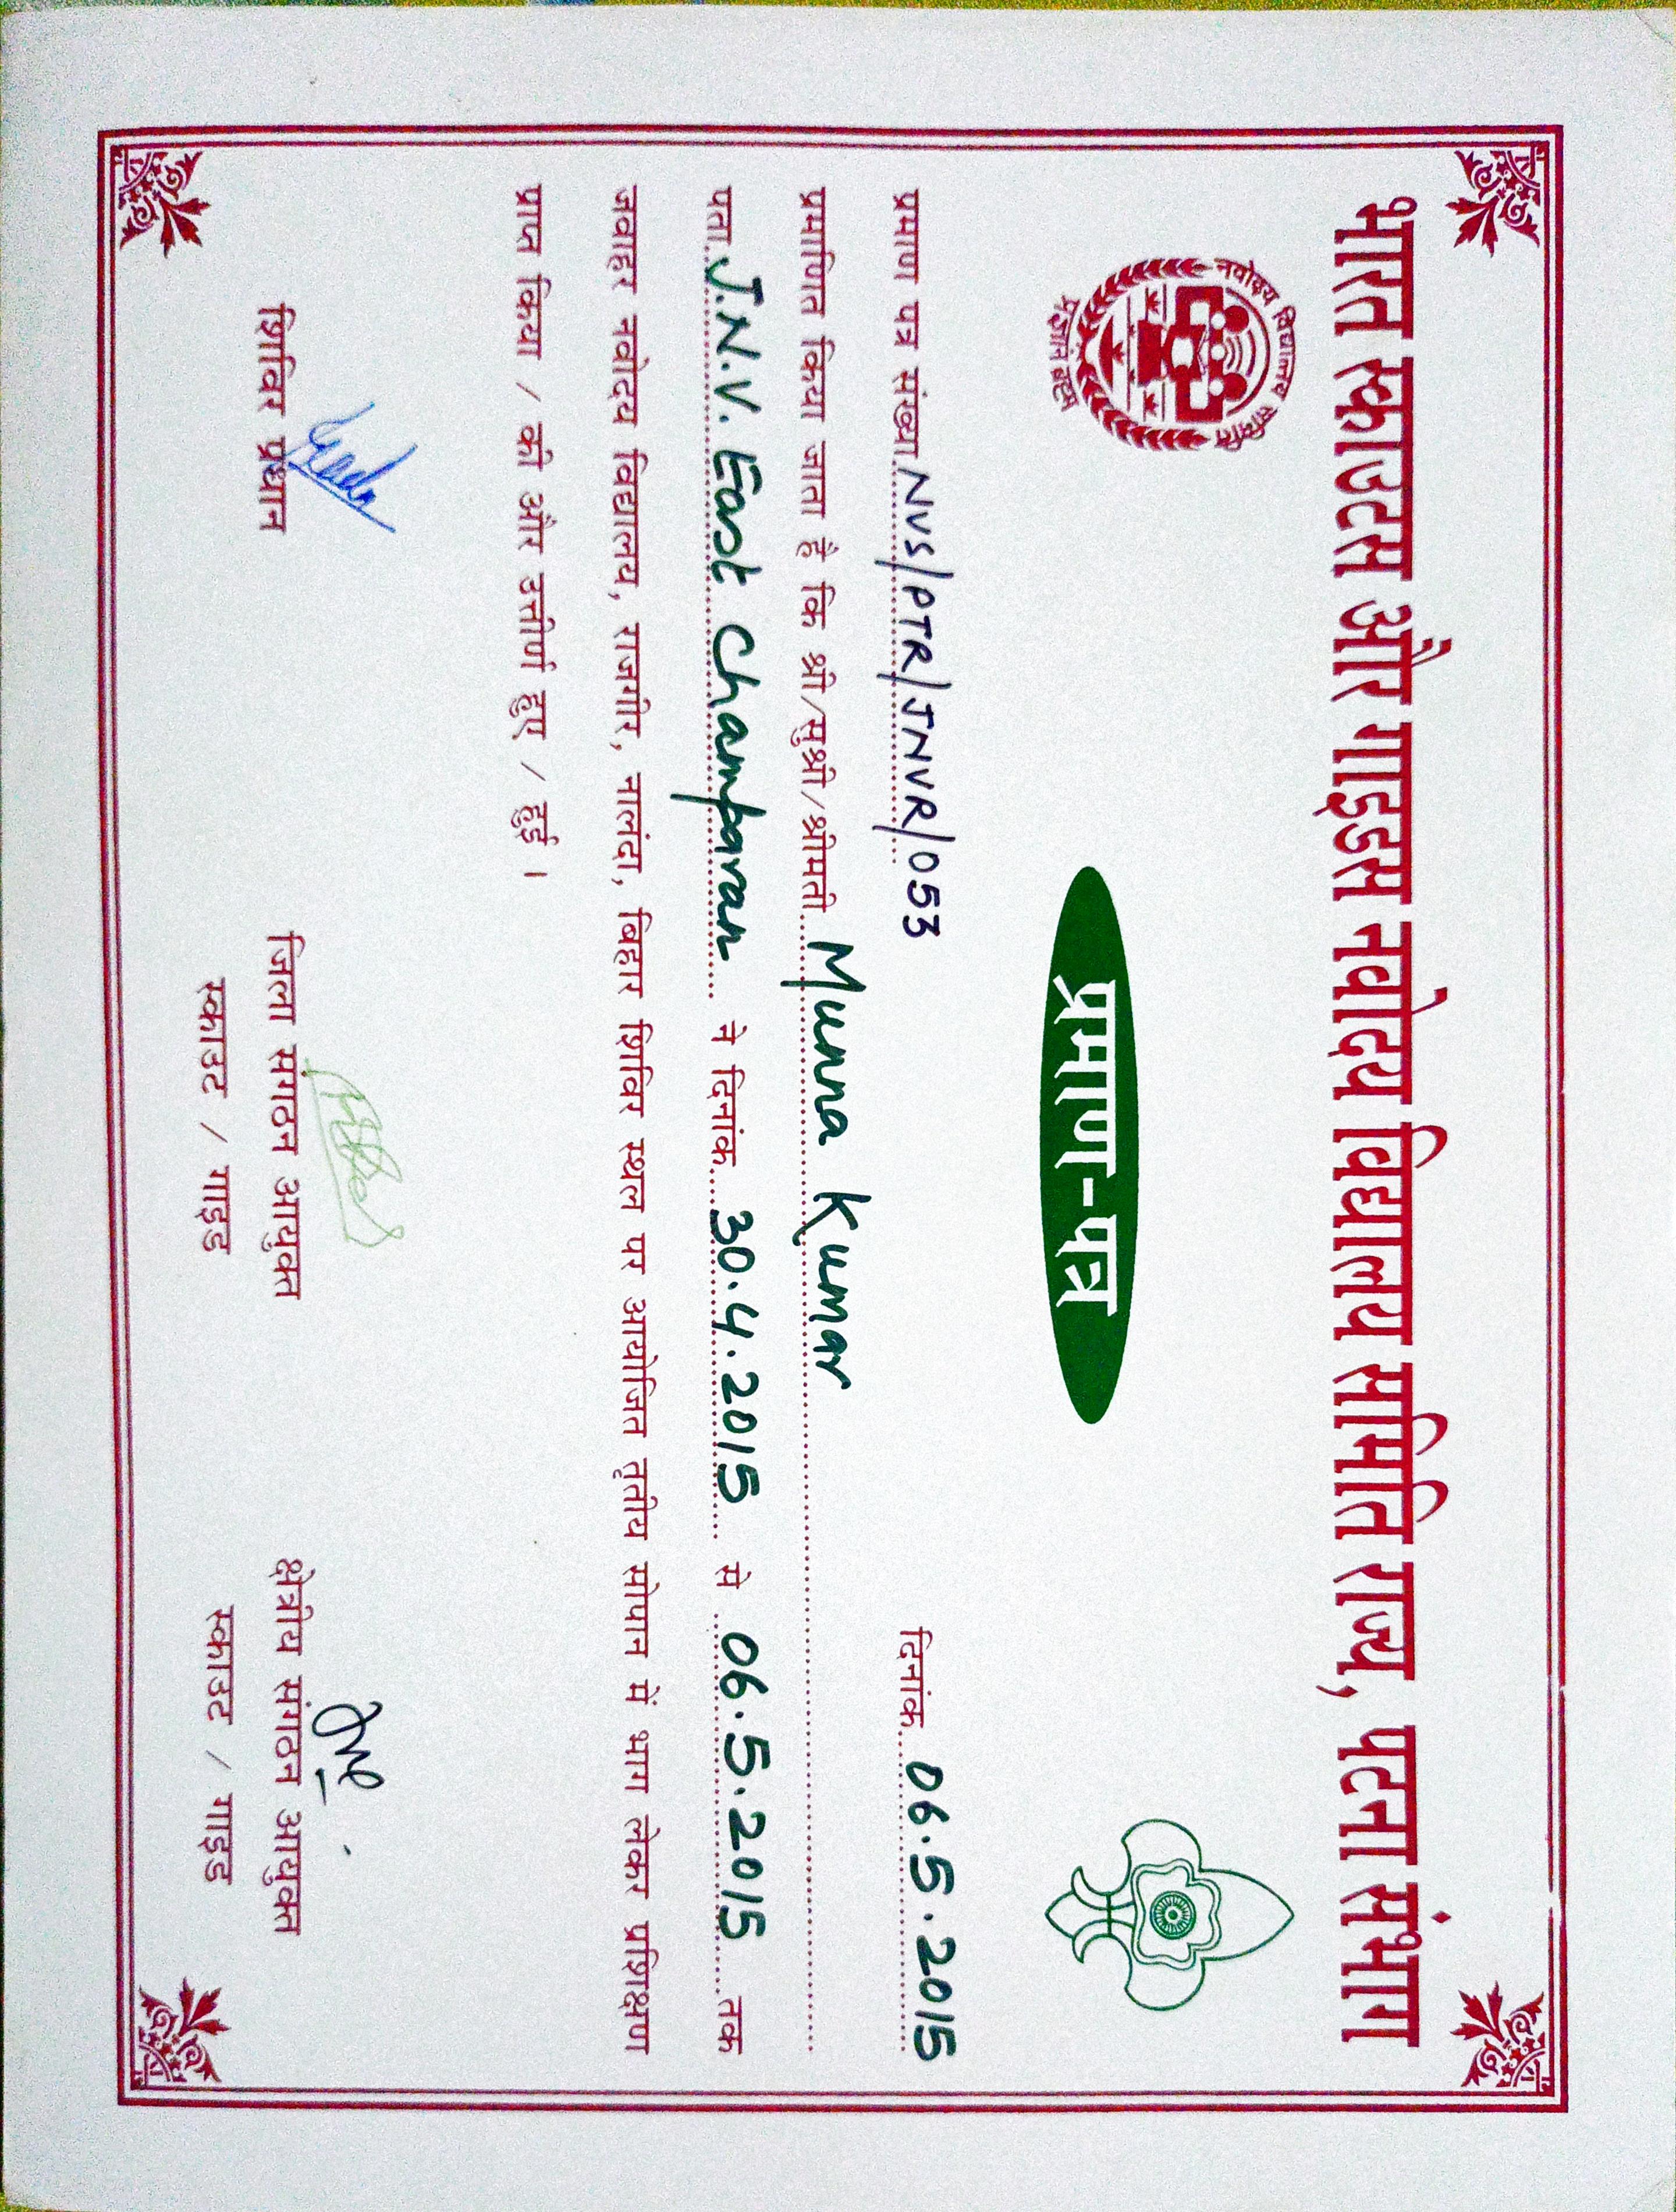 भारत स्काउटस और गाइडस नवोदय विद्यालय समिति राज्य, पटना संभाग
नवोदय विद्यालय समिति
प्रज्ञानं ब्रह्म
प्रमाण-पत्र
प्रमाण पत्र संख्या NVS/PTR/JNVR/053 दिनांक 06.5.2015
प्रमाणित किया जाता है कि श्री/सुश्री/श्रीमती Munna Kumar
पता J.N.V. East Champaran ने दिनांक 30.4.2015 से 06.5.2015 तक
जवाहर नवोदय विद्यालय, राजगीर, नालंदा, बिहार शिविर स्थल पर आयोजित तृतीय सोपान में भाग लेकर प्रशिक्षण
प्राप्त किया / की और उत्तीर्ण हुए / हुई ।
शिविर प्रधान जिला संगठन आयुक्त क्षेत्रीय संगठन आयुक्त
स्काउट / गाइड स्काउट / गाइड